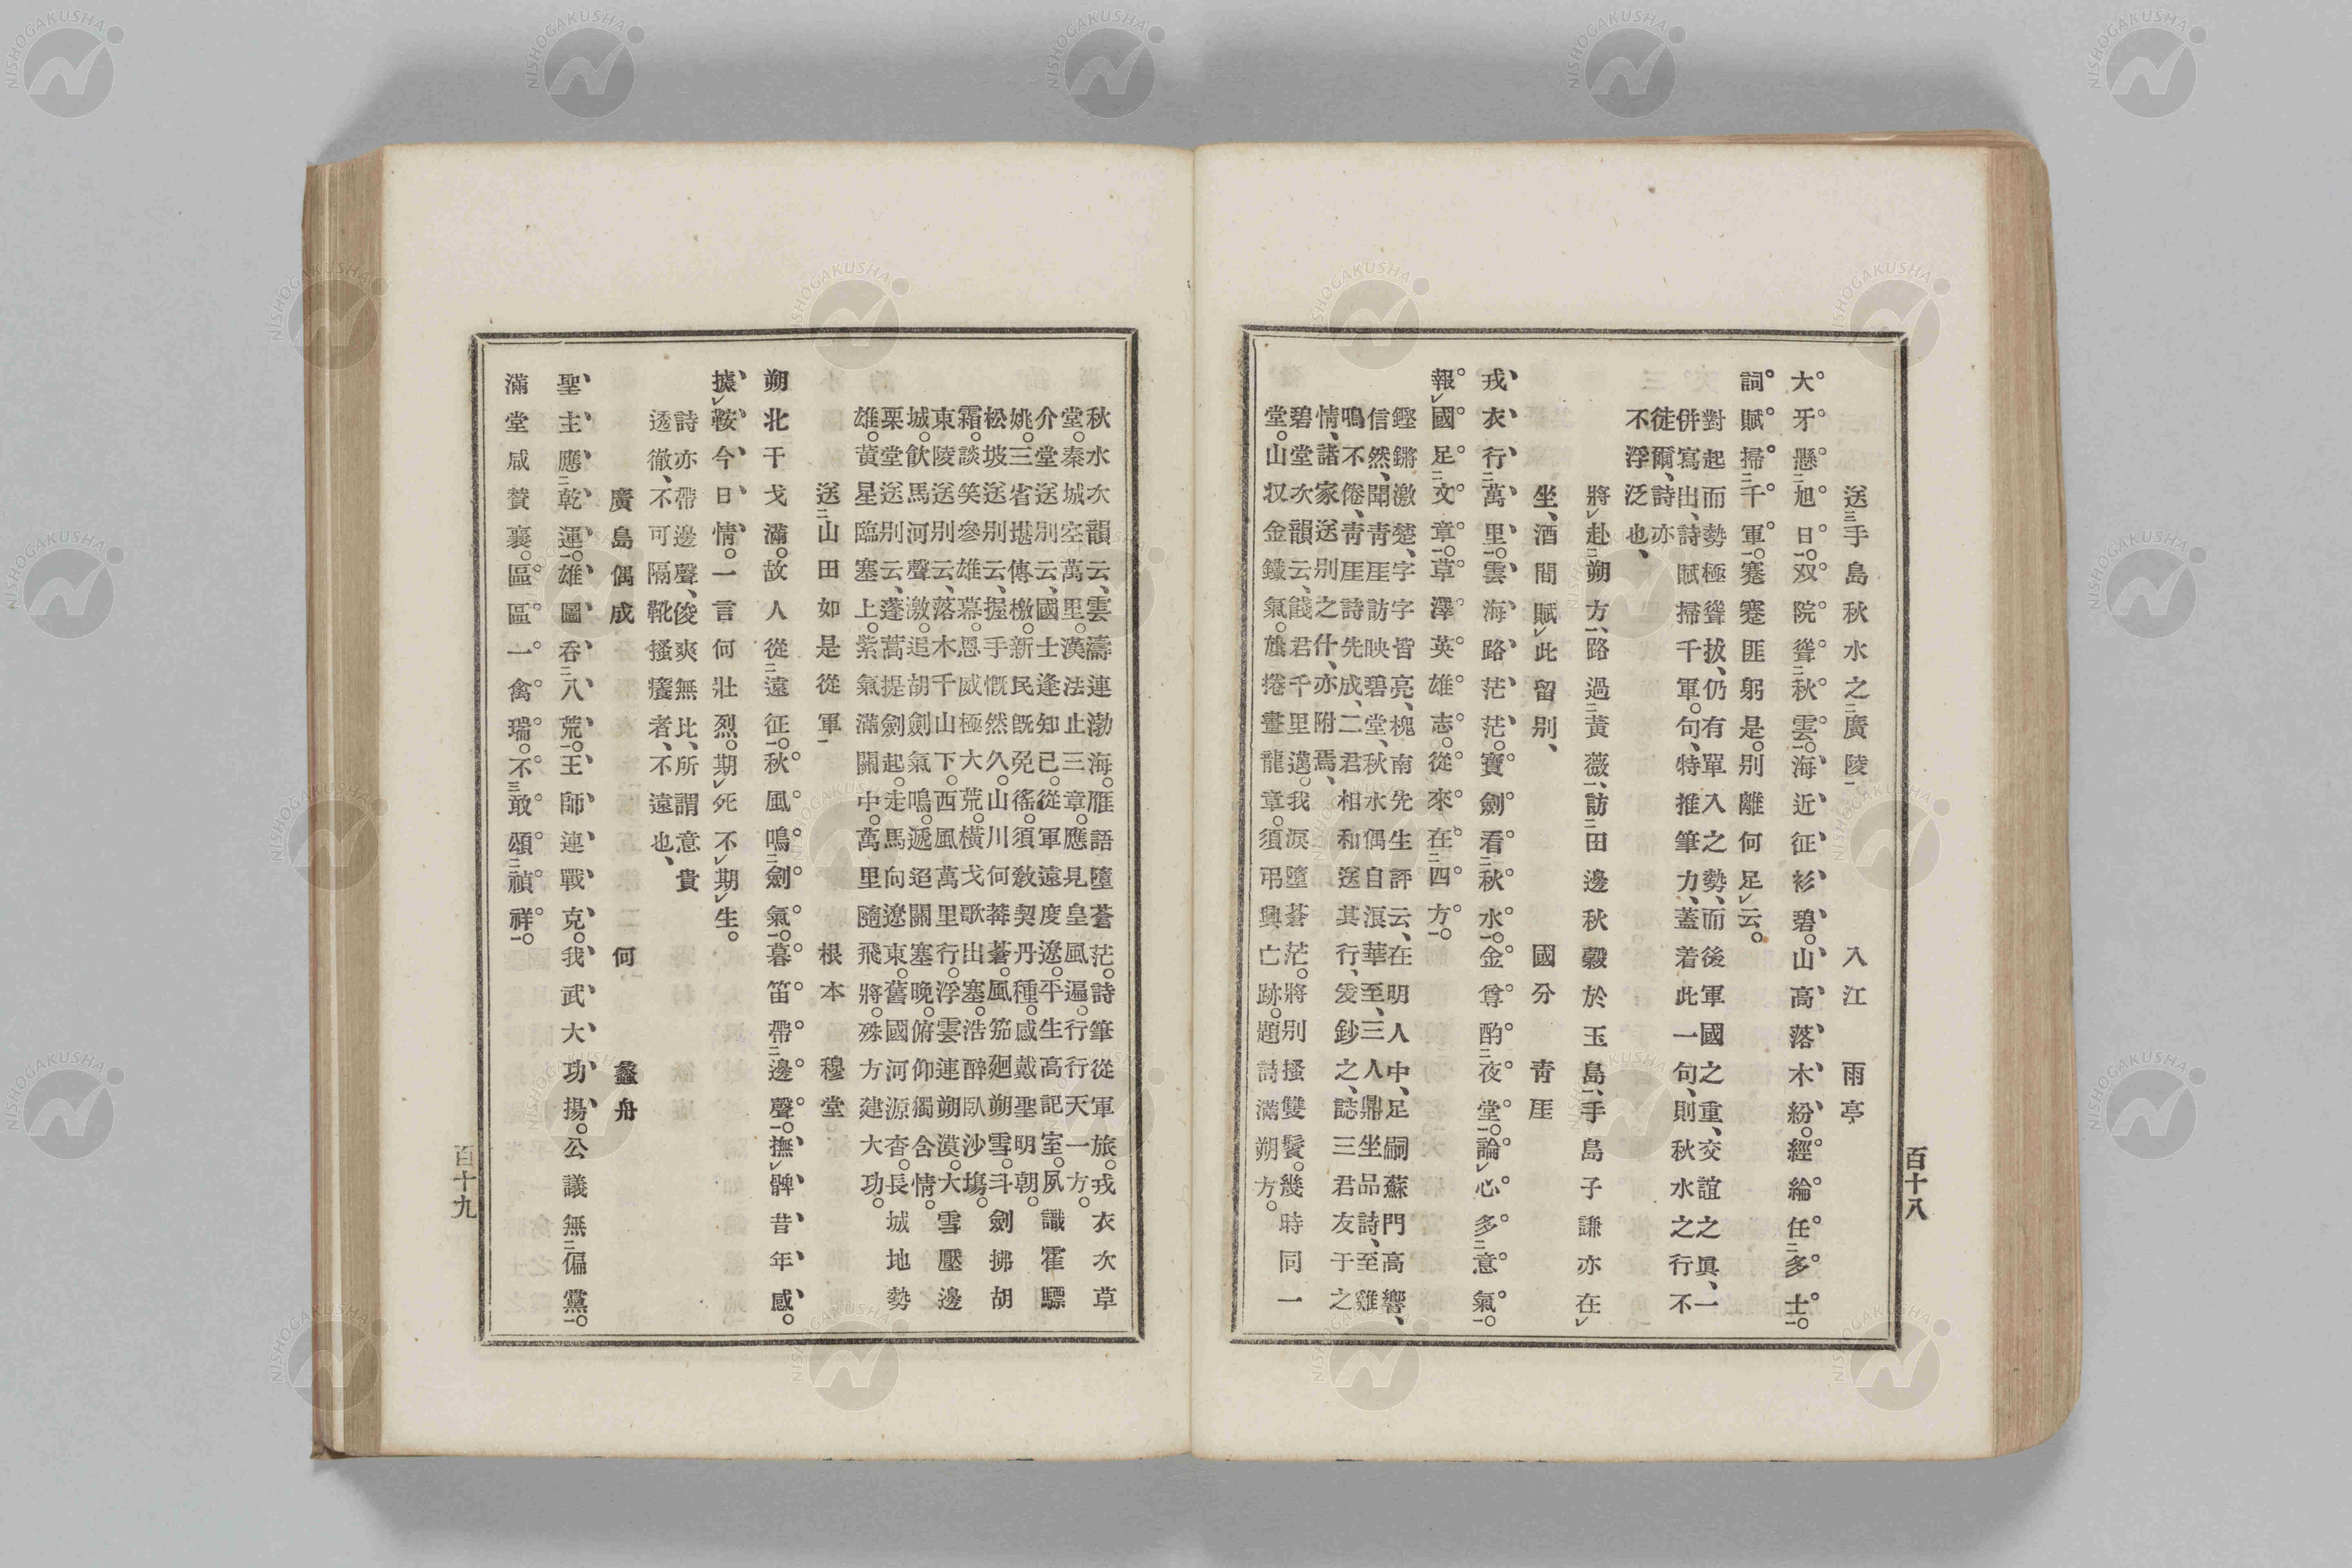 百十八
送手島秋水之廣陵 入江 雨亭
大牙懸旭日。双院聳秋雲。海近征衫碧。山高落木紛。經綸任多士。
詞賦掃千軍。蹇蹇匪躬是。別離何足云。
對起而勢極聳拔、仍有單入之勢、而後軍國之重、交誼之眞、一
併寫出、詩賦掃千軍。句、特推筆力、蓋着此一句、則秋水之行不
徒爾、詩亦
不浮泛也、
將赴朔方、路過黃薇、訪田邊秋穀於玉島、手島子謙亦在
坐、酒間賦此留別、 國分 青厓
戎衣行萬里。雲海路茫茫。寶劍看秋水。金尊酌夜堂。論心多意氣。
報國足文章。草澤英雄志。從來在四方。
鏗鏘激楚、字字皆亮、槐南先生評云、在明人中、足嗣蘇門高響、
信然、聞青厓訪映碧堂、秋水偶自浪華至、三人鼎坐品詩、至雞
鳴不倦、青厓詩先成、二君相和送其行、爰鈔之、誌三君友于之
情、諸家送別之什、亦附焉、
碧堂次韻云、餞君千里邁。我淚墮蒼茫。將別搔雙鬢。幾時同一
堂。山収金鐵氣。旗捲畫龍章。須弔興亡跡。題詩滿朔方。
秋水次韻云、雲濤連渤海。雁語墮蒼茫。詩筆從軍旅。戎衣次草
堂。秦城空萬里。漢法止三章。應見皇風遍。行行天一方。
介堂送別云、國士逢知己。從軍遠度遼。平生高記室。夙識霍驃
姚。三省堪傳檄。新民既免徭。須敎契丹種。感戴聖明朝。
松坡送別云、握手慨然久。山川何莽蒼。風笳廻朔雪。斗劍拂胡
霜。談笑參雄幕。恩威極大荒。橫戈歌出塞。浩醉臥沙塲。
東陵送別云、落木千山下。西風萬里行。浮雲連朔漠。大雪壓邊
城。飮馬河聲激。追胡劍氣鳴。遞迢關塞晚。俯仰獨含情。
栗堂送別云、蓬蒿提劍起。走馬向遼東。舊國河源杳。長城地勢
雄。黃星臨塞上。紫氣滿關中。萬里隨飛將。殊方建大功。
送山田如是從軍 根本 穆堂
朔北干戈滿。故人從遠征。秋風鳴劍氣。暮笛帶邊聲。撫髀昔年感。
據鞍今日情。一言何壯烈。期死不期生。
詩亦帶邊聲、俊爽無比、所謂意貴
透徹、不可隔靴搔癢者、不遠也、
廣島偶成 何 蠡舟
聖主應乾運。雄圖呑八荒。王師連戰克。我武大功揚。公議無偏黨。
滿堂咸贊襄。區區一禽瑞。不敢頌禎祥。
百十九